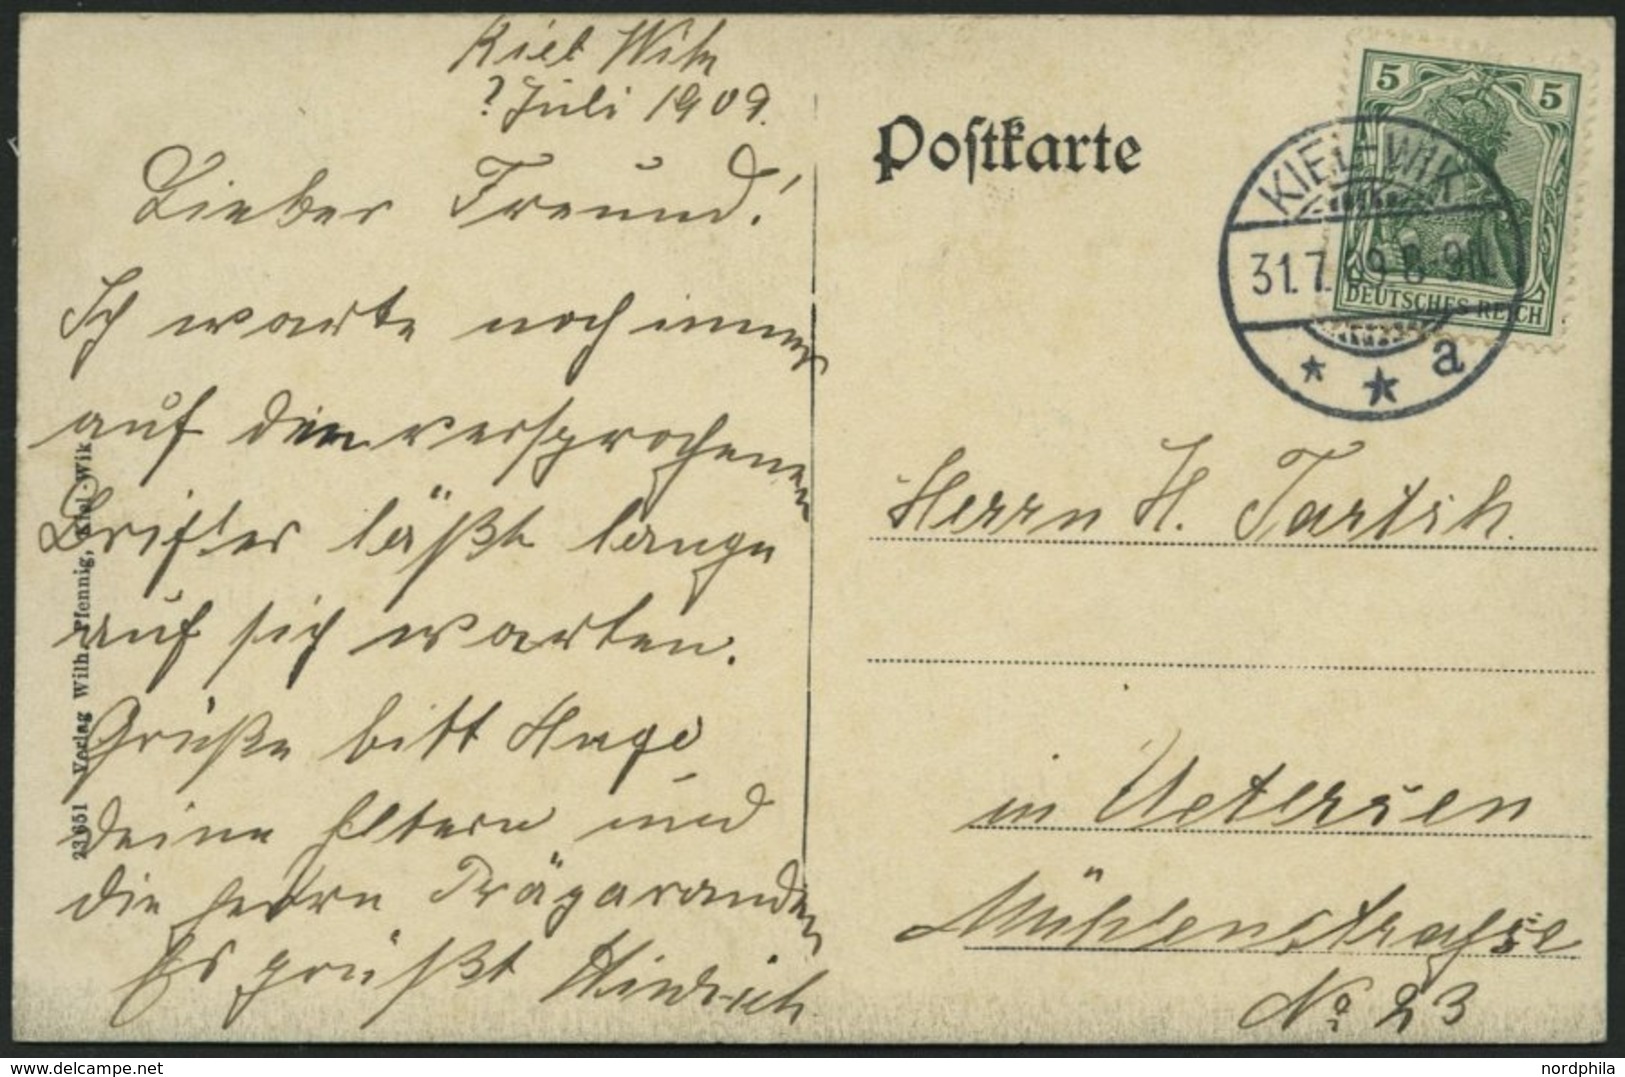 Kiel Wik
? Juli 1909.
Lieber Freund!
Ich warte noch immer
auf den versprochenen
Brif. der läßt lange
auf sich warten.
Grüße bitt Hugo
deine Eltern und
die Herrn Präparanden
Es grüßt Hindrich
23651 Verlag Wilh. Pfennig, Kiel-Wik
Postkarte
5 5
DEUTSCHES REICH
KIEL-WIK
31.7.09 8-9N
* * a
Herrn H.
in Uetersen
Mühlenstraße
No 23
nordphila